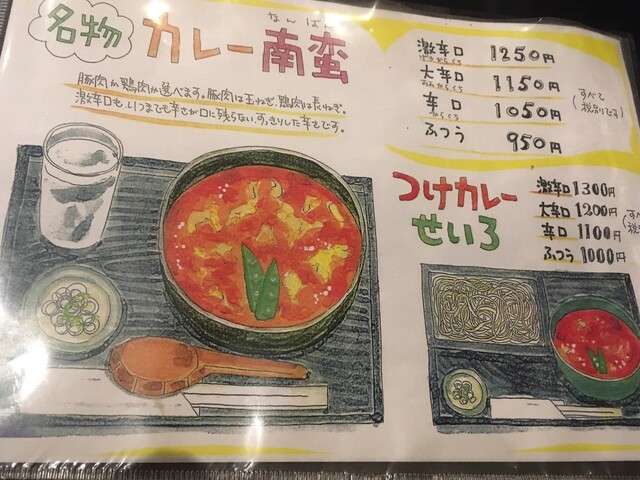 名物
なんばん
カレー南蛮
豚肉か鶏肉か選べます。豚肉は玉ねぎ、鶏肉は長ねぎ。
激辛口も、いつまでも辛さが口に残らない、すっきりした辛さです。
激辛口 1250円
げきからくち
大辛口 1150円
おおからくち
辛口 1050円
からくち
ふつう 950円
(すべて
税別りです)
つけカレー
せいろ
激辛口 1300円
大辛口 1200円
辛口 1100円
ふつう 1000円